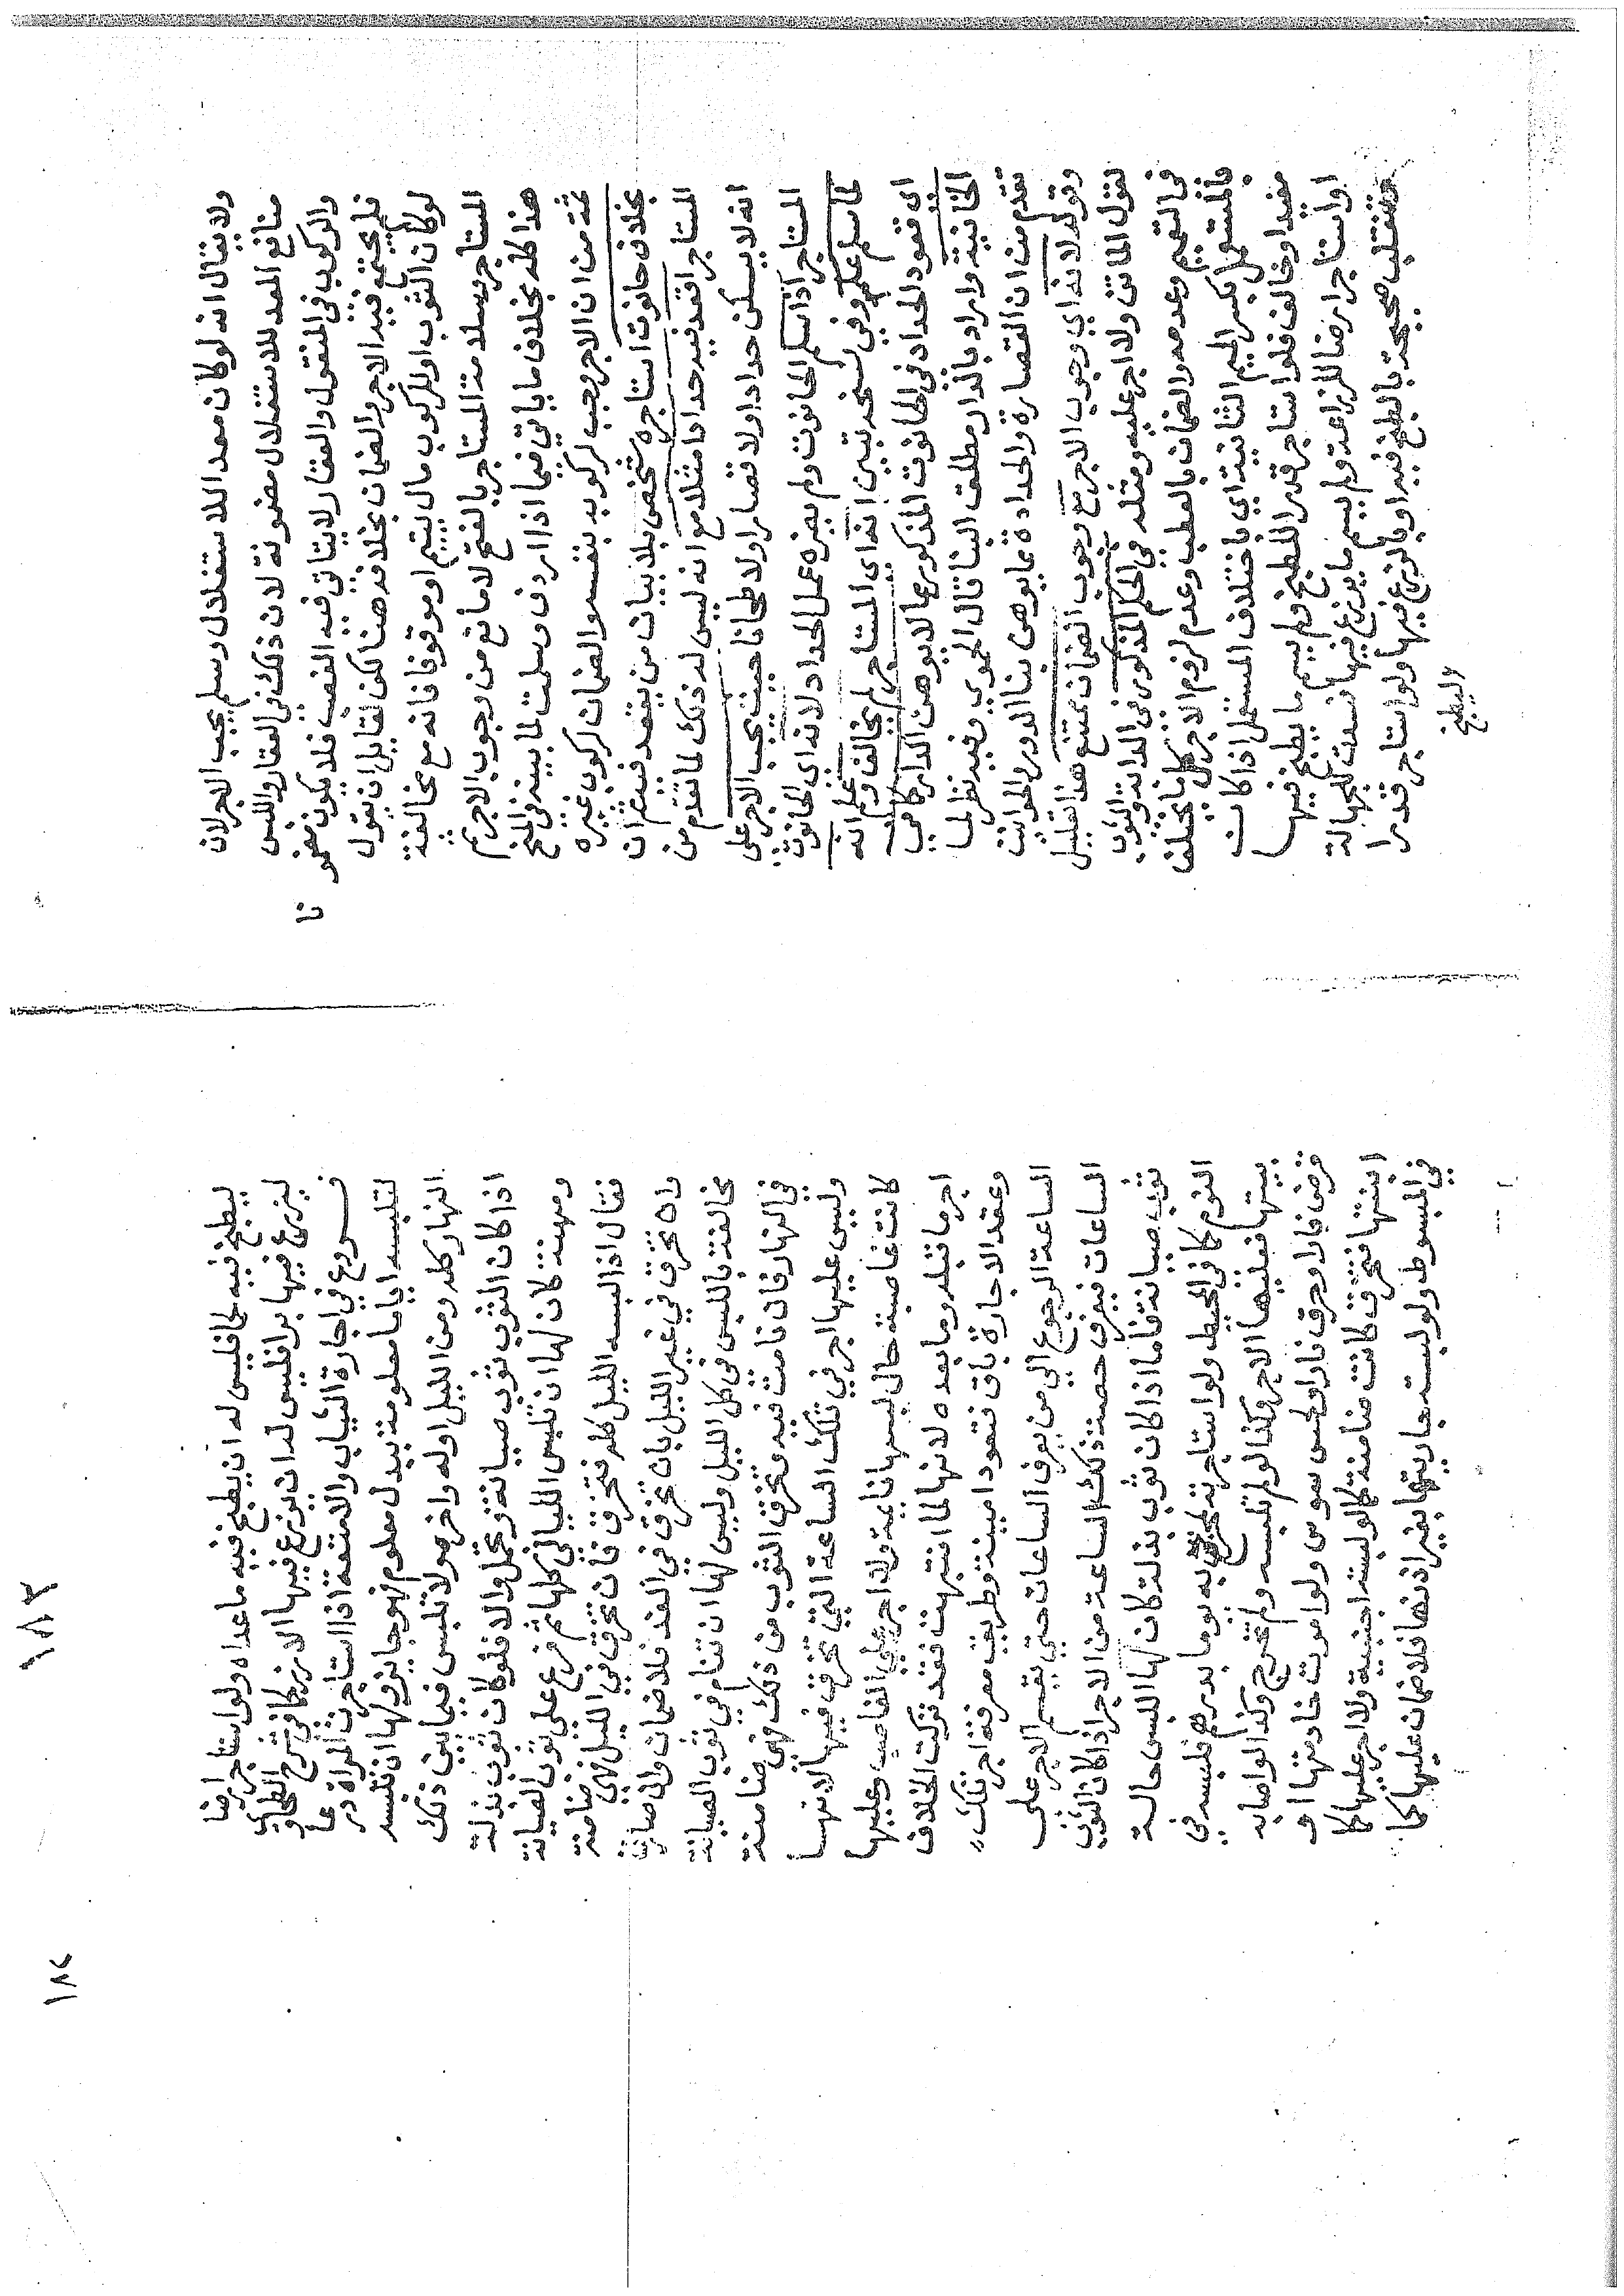 ولا يقال انه لو كان معدا للاستغلال وسلم يجب الاجر لان
منافع المعد للاستغلال مضمونة لان ذلك في العقار واللبس
والركوب في المنقول والعقار لا يتاتي فيه الغصب فلا يكون مضمو نا
فلم يجتمع فيه الاجر والضمان بخلافه هنا لكن لقايل ان يقول
لو كان الثوب او المركوب مال يتيم او موقوفا فانه مع مخالفة
المستاجر وسلامة المستاجر بالفتح لا مانع من وجوب الاجر ثم
هذا كله بخلاف ما ياتي فيما اذا اردف وسلمت لما بينه في المنح
ثمة من ان الاجر وجب لركوبه بنفسه والضمان لركوب غيره
بخلاف حانوت استاجره شخص بلا بيان من يقعد فيه ثم ان
المستاجر اقعد فيه حدادا مثلا مع انه ليس له ذلك لما تقدم من
انه لا يسكن حدادا ولا قصارا ولا طحانا حيث يجب الاجر على
المستاجر اذا سلم الحانوت ولم يضره عمل الحداد لانه اى الحانوت
لما سلم علم وفي نسخة تبين انه اى المستاجر لم يخالف ولم يعلم انه
اى قعود الحداد في الحانوت المذكور مما لا يوهن الدار كما في
الخانية واراد بالدار مطلق البنا قال الحموي وفيه نظر لما
تقدم من ان القصارة والحدادة مما يوهن بنا الدور والحوانيت
وقوله لانه اي وجوب الاجر مع وجوب الضمان ممتنع هذا تعليل
لقول الماتن ولا اجر عليه ومثله في الحكم المذكور في الدابة والثوب
في التعميم وعدمه والضمان بالعطب وعدم لزوم الاجر كل ما يختلف
بالمستعمل بكسر الميم الثانية اي باختلاف المستعمل اذا كان
مقيدا وخالف فلو استاجر قدرا للطبخ ولم يسم ما يطبخ فيها
او استاجر ارضا للزراعة ولم يسم ما يزرع فيها فسدت للجهالة
فتنقلب صحيحة بالطبخ فيه او بالزرع فيها ولو استاجر قدرا
ليطبخ
ليطبخ فيه لحما فليس له ان يطبخ فيه ما عداه ولو استاجر ارضا
ليزرع فيها برا فليس له ان يزرع فيها الارز كما في شرح الطحاوي
فـــروع في اجارة الثياب والامتعة اذا استاجرت المراة درعا
لتلبسه اياما معلومة ببدل معلوم فهو جايز ولها ان تلبسه
النهار كله ومن الليل اوله واخره ولا تلبس فيما بين ذلك
اذا كان الثوب ثوب صيانة وتجمل والا فلو كان ثوب بذلة
ومهنة كان لها ان تلبس الليالي كلها ثم فرع على ثوب الصيانة
فقال اذا لبسه الليل كله فتخرق فان تخرق في الليل فهي ضامنة
وان تخرق في غير الليل بان تخرق في الغد فلا ضمان وان صارت
مخالفة باللبس في كل الليل وليس لها ان تنام في ثوب الصيانة
في النهار فان نامت فيه فتخرق الثوب من ذلك فهي ضامنة
وليس عليها اجر في تلك الساعة التي تخرق فيها لانها
كانت غاصبة حال لبسها نايمة ولا اجر على الغاصب وعليها
اجر ما قبله وما بعده لانها لما انتبهت فقد تركت الخلاف
وعقد الاجارة باق فتعود امينة وطريق معرفة اجر تلك
الساعة الرجوع الي من يعرف الساعات حتى يقسم الاجر على
الساعات فيعرف حصة ذلك الساعة من الاجر اذا كان الثوب
ثوب صيانة فاما اذا كان ثوب بذلة كان لها اللبس حالة
النوم كما في المحيط ولو استاجرته لمخرج به يوما بدرهم فلبسه في
بيتها فعليها الاجر وكذا لو لم تلبسه ولم تخرج وكذا لو اصابه
قرض فار او حرق نار او لحس سوس ولو امرت خادمتها او
ابنتها فتخرق كانت ضامنة كما لو لبسته اجنبية ولا اجر عليها كما
في المبسوط ولو لبسته جاريتها بغير اذنها فلا ضمان عليها كما
١٨٣
١٨٢